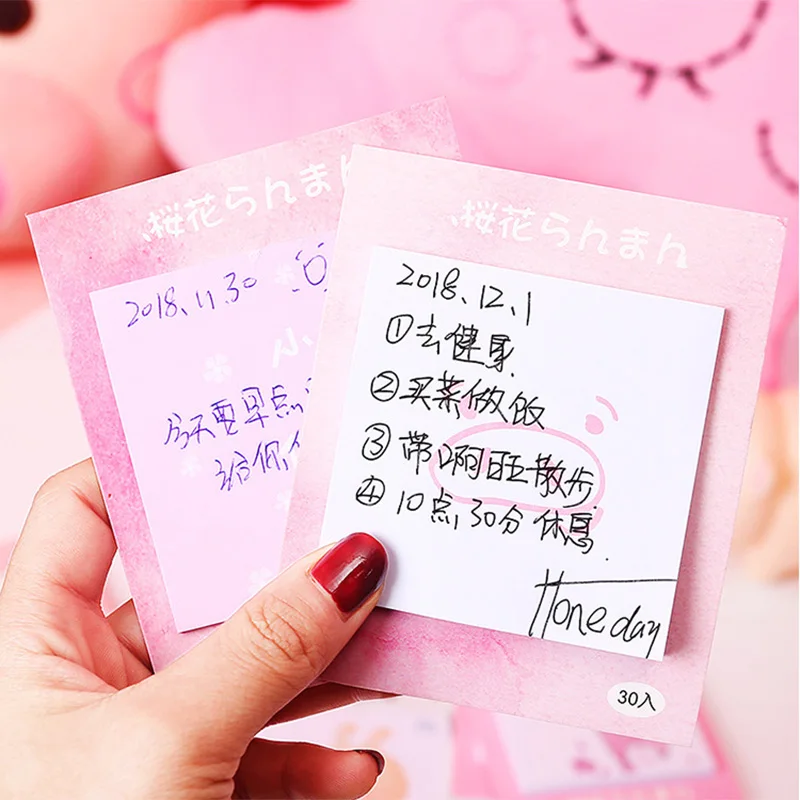 桜花らんまん
2018.11.30
小
今天要早点
给你
桜花らんまん
2018.12.1
①去健身.
②买菜做饭
③带啊旺散步.
④10点30分休息.
Hone day
30入